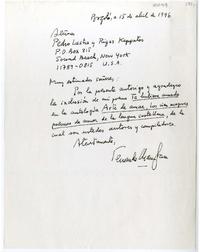 Bogotá, a 15 de abril de 1996
Señores
Pedro Lastra y Rigas Kappatos
P.O. Box 215
Sound Beach, New York
11789-0815 U.S.A.
Muy estimados señores:
Por la presente autorizo y agradezco
la inclusión de mi poema Te hubiera amado
en la antología Arte de amar. Los cien mejores
poemas de amor de la lengua castellana, de la
cual son ustedes autores y compiladores.
Atentamente,
Fernando Charry Lara